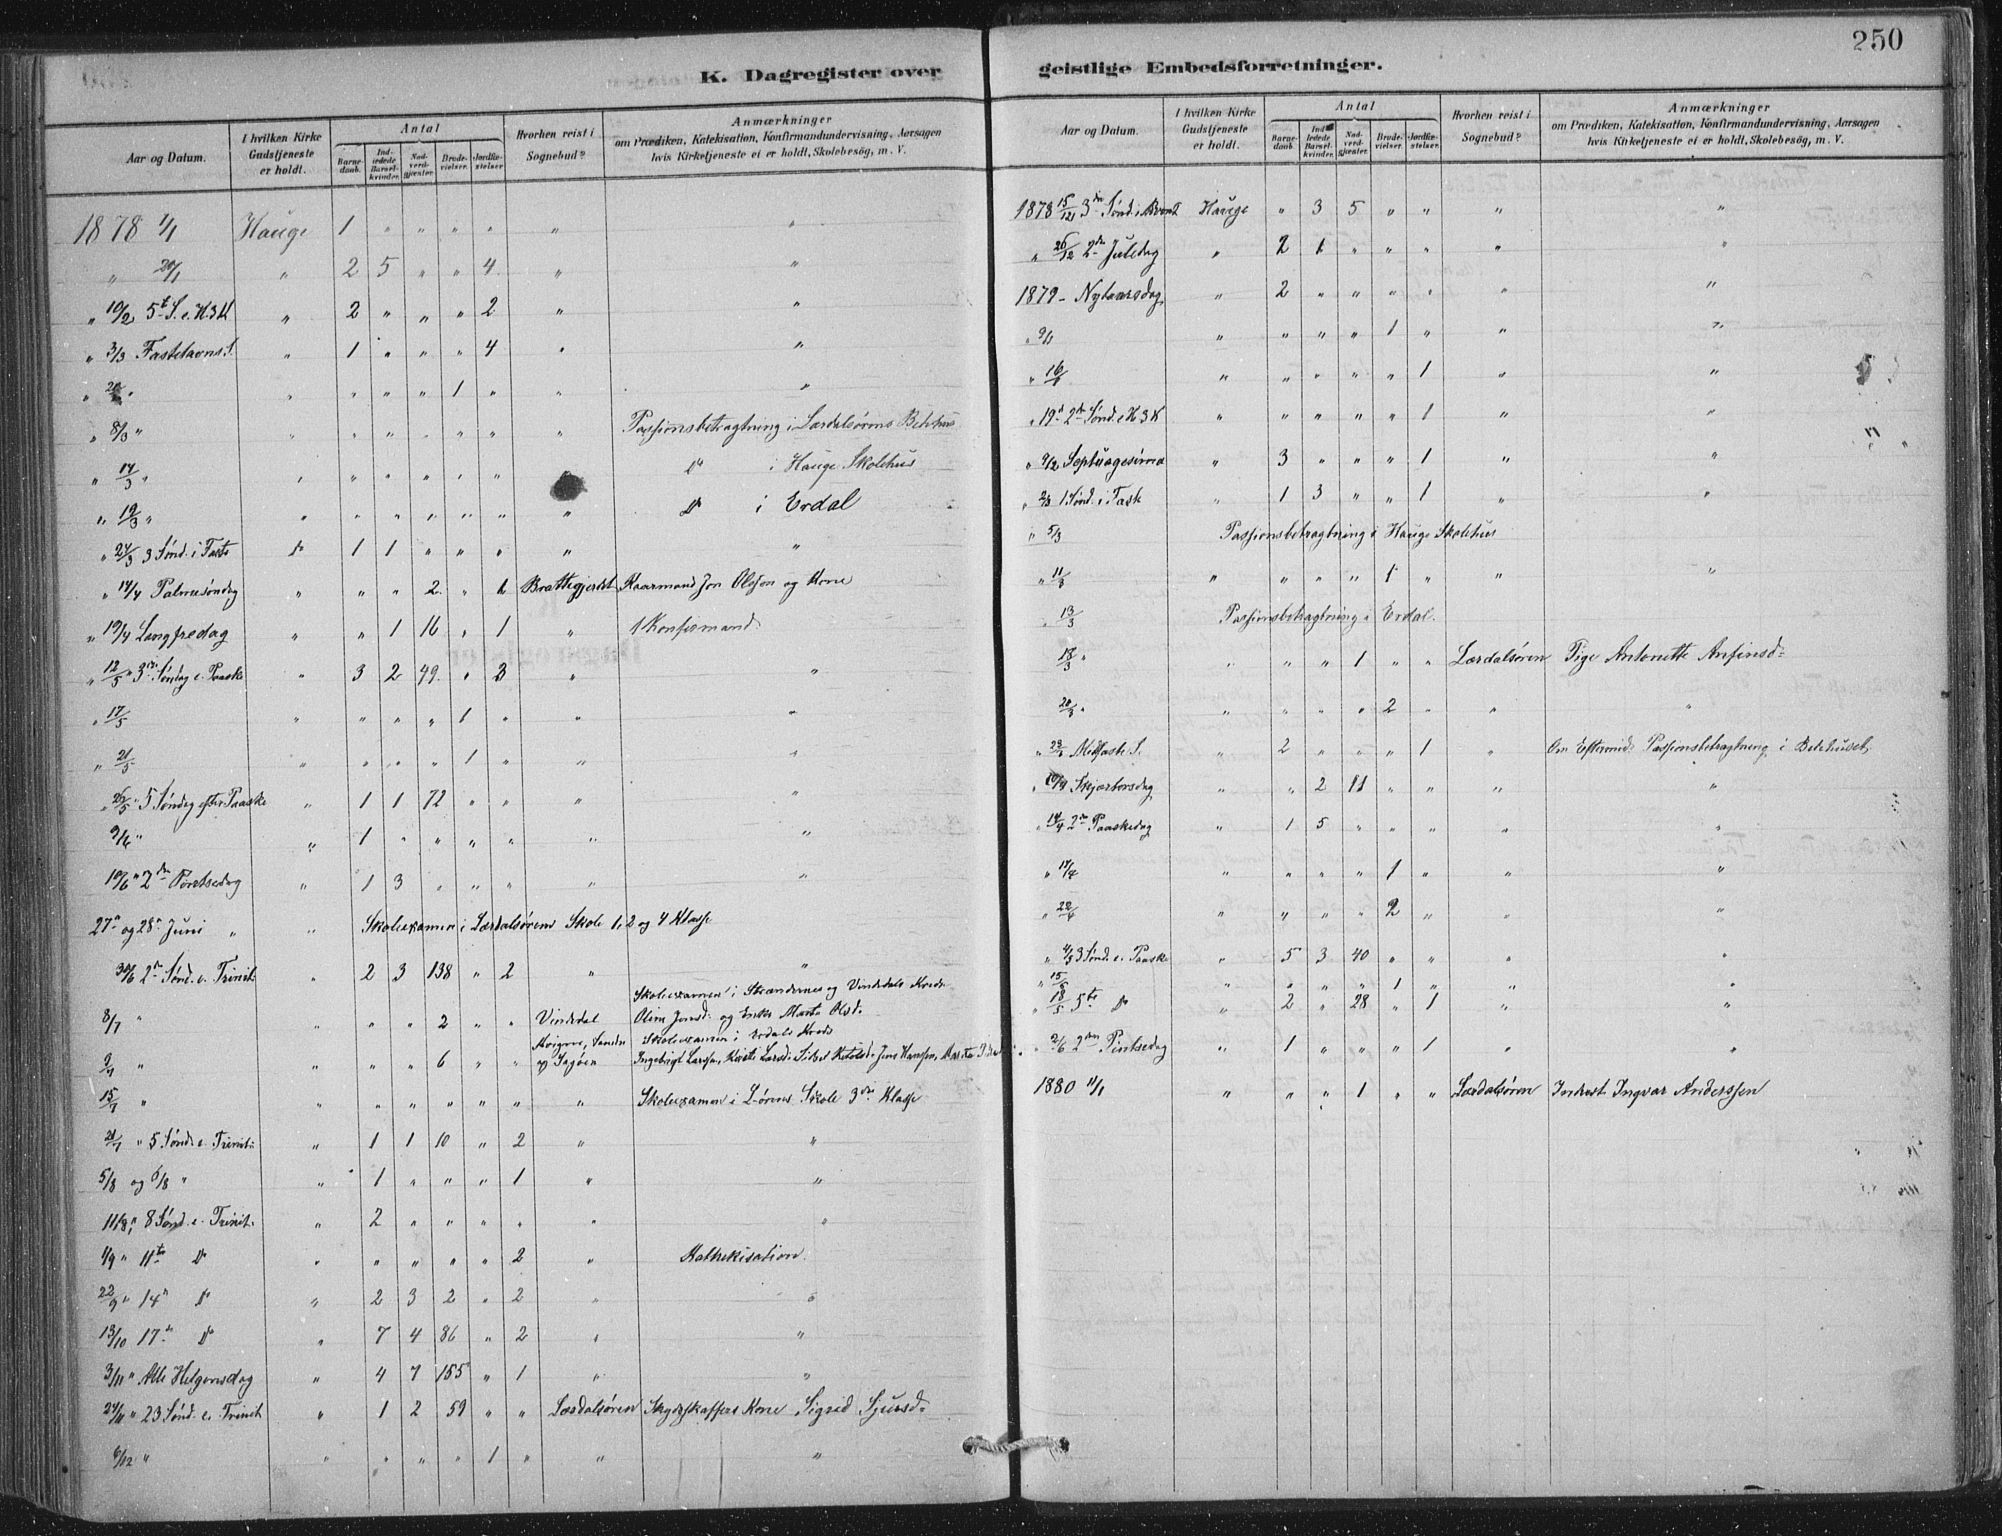 K. Dagregister over
Aar og Datum. I hvilken Kirke Gudstjeneste er holdt. Antal Barnedaab. Indledede Barselkvinder. Nadverdgjæster. Brudevielser. Jordfæstelser Hvorhen reist i Sognebud? Anmærkninger om Prædiken, Katekisation, Konfirmandundervisning, Aarsagen hvis Kirketjeneste ei er holdt, Skolebesøg, m. V.
1878 1/1 Hauge 1 " " " " " "
" 20/1 " 2 5 " " 4 " "
" 10/2 5t S. e. H.3K " 2 " " " 2 " "
" 3/3 Fastelavns S. " 1 " " " 4 " "
" " " " " 1 " " "
" 8/3 " " " " " " " " Passionsbetragtning i Lærdalsørens Bedehus
" 14/3 " " " " " " " Do i Hauge Skolehus
" 19/3 " " " " " " " " Do i Erdal
" 24/3 3 Sønd. i Faste Do 1 1 " " " " "
" 14/4 Palmesøndag " " " 2 " 1 Brattegjerdet Kaarmand Jon Olsson og Kone
" 19/4 Langfredag " " 1 16 " 1 " 1 Konfirmand
" 12/5 3die Søndag e. Paaske " 3 2 49 " 3 " "
" 17/5 " " " " 1 " " "
" 21/5 " " " " 1 " " "
" 26/5 " 5 Søndag efter Paaske " 1 1 72 " " " "
9/6 " " 1 " " " " " "
10/6 " 2den Pintsedag " 1 3 " " " " "
27n og 28n Juni " " Skoleexamen i Lærdalsørens Skole 1, 2 og 4 Klasse
30/6 2n Sønd. e. Trinit: " 2 3 138 " 2 " "
Skoleexamen i Strændernes og Vindedals Kreds
8/7 " " " 2 " " Vindedal Olina Jonsd: og Enke Marta Olsd.
Skoleexamen i Erdals Kreds
9/7 " " " " 6 " " Ingebrigt Larsen, Kirsti Larsd:
15/7 " " " " " " " " Skoleexamen i L-ørens Skole 3die Klasse
21/7 " 5 Sønd. e. Trinit: " 1 1 10 " 2 " "
5/8 og 6/8 " " 1 " " " 1 " "
11/8 " 8 Sønd. e. Trinit: " 2 " " " " " "
1/9 " 11te Do " " " " " 2 " Kathekisation.
22/9 " 14n Do " 2 3 2 " 2 " "
13/10 17de Do " 7 4 86 " 2 " "
3/11 " Alle Helgensdag " 4 7 155 " 1 " "
24/11 " 23 Sønd. e. Trinit " 1 2 59 " " Lærdalsøren Skydsskaffers Kone Sigrid Sjursd:
6/12 " " " " " 1 " " "
250
geistlige Embedsforretninger.
Aar og Datum. I hvilken Kirke Gudstjeneste er holdt. Antal Barnedaab. Indledede Barselkvinder. Nadverdgjæster. Brudevielser. Jordfæstelser. Hvorhen reist i Sognebud? Anmærkninger om Prædiken, Katekisation, Konfirmandundervisning, Aarsagen hvis Kirketjeneste ei er holdt, Skolebesøg, m. V.
1878 15/12 3die Sønd. i Advent Hauge " 3 5 " " " "
" 26/12 2den Juledag " 2 1 " " " " "
1879 - Nytaarsdag " 2 " " " " " "
" 9/1 " " " " 1 " " "
" 16/1 " " " " " 1 " "
" 19n 2n Sønd. e. H 3 K " " " " " 1 " "
" 9/2 Septuagesima " 3 " " " 1 " "
" 2/3 1 Sønd. i Fast " 1 3 " " 1 " "
" 5/3 Passionsbetragtning i Hauge Skolehus
" 11/3 " " " " 1 " " "
" 13/3 Passionsbetragtning i Erdal.
13/3 " " " " 1 " " Lærdalsøren Pige Antonette Anfinsd:
20/3 " " " " " 2 " " "
" 23/3 Midfaste S. " 2 " " " 1 " Om Eftermid. Passionsbetragtning i Bedehuset
" 10/4 Skjærtorsdag " " 2 11 " " " "
" 14/4 2den Paaskedag " 1 5 " " " " "
" 17/4 " " " " 1 " " "
" 22/4 " " " " 2 " " "
" 4/5 3 Sønd. e. Paaske " 5 3 40 " " " "
" 15/5 " " " " 1 " " "
" 18/5 5te Do " 2 " 28 " 1 " "
" 2/6 2den Pintsedag " 1 " " " 1 " "
1880 11/1 " " " 1 " " Lærdalsøren Inderst Ingvar Anderssen